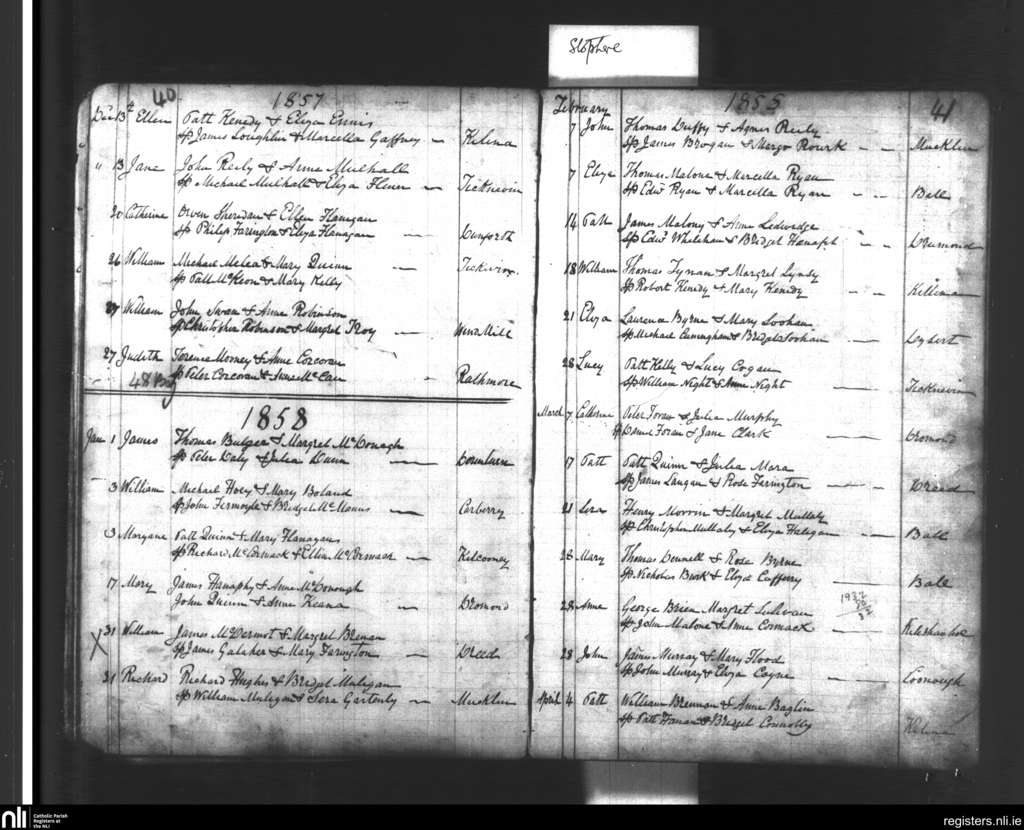 Slophere
40
1857
Dec 13th Ellen Patt Kenedy & Eliza Ennis
Sp James Loughlin & Marcella Gaffney Kilina
" 13 Jane John Reily & Anne Mulhall
Sp Michael Mulhall & Eliza Ticknevin
20 Catherine Owen Sheridan & Ellen Flanigan
Sp Philip Farington & Eliza Flanagan
26 William Michael McLea & Mary Quinn Ticknevin
Sp Patt McKeon & Mary Kelly
27 William John Swan & Anne Robinson
Sp Christopher Robinson & Margret Troy
27 Judith Terence Morney & Anne Corcoran
48 Sp Peter Corcoran & Anne McCan Rathmore
1858
Jan 1 James Thomas Bulger & Margret McDonagh
Sp Peter Daly & Julia Dunn
3 William Michael Hoey & Mary Boland
Sp John Fermoyle & Bridget McManus Carberry
3 Maryane Patt Quinn & Mary Flanagan
Sp Richard McCormack & Ellen McCormack Kilcooney
17 Mary James Hanaphy & Anne McDonough
John Quinn & Anne Keana Dromond
X 31 William James McDermot & Margret Brenan
Sp James Galaher & Mary Farington Dreed
31 Richard Richard Hughes & Bridget Muligan
Sp William Muligan & Sera Gartenly Mucklin
41
1858
February
7 John Thomas Duffy & Agnes Reily
Sp James Brogan & Margt Rourk Mucklin
7 Eliza Thomas Malone & Marcella Ryan
Sp Edwd Ryan & Marcella Ryan Ball
14 Patt James Malony & Anne Ledwidge
Sp Edwd Whelehan & Bridget Hanaphy Drumond
18 William Thomas Tynan & Margret Lynsy
Sp Robert Kenedy & Mary Kenedy Killina
21 Eliza Laurence Byrne & Mary Loohan
Sp Michael Cuningham & Bridget Loohan
28 Lucy Patt Kelly & Lucy Cogan
Sp William Night & Anne Night Ticknevin
March 7 Catherine Peter Foran & Julia Murphy
Sp Daniel Foran & Jane Clark Dromond
17 Patt Patt Quinn & Julia Mara
Sp James Langan & Rose Farington Dreed
21 Sera Henry Morrin & Margret Mullaly
Sp Christopher Mullaly & Eliza Halegan Ball
28 Mary Thomas Dennell & Rose Byrne
Sp Nicholas Burk & Eliza Cafferry Ball
28 Anne George Brien Margret Sulivan
1932
Sp John Malone & Anne Cormack
28 John James Murray & Mary Flood
Sp John Murray & Eliza Coyne Coonough
April 4 Patt William Brennan & Anne Baglin
Sp Patt Hanan & Bridget Connolly Kilina
nli
Catholic Parish
Registers at
the NLI
registers.nli.ie